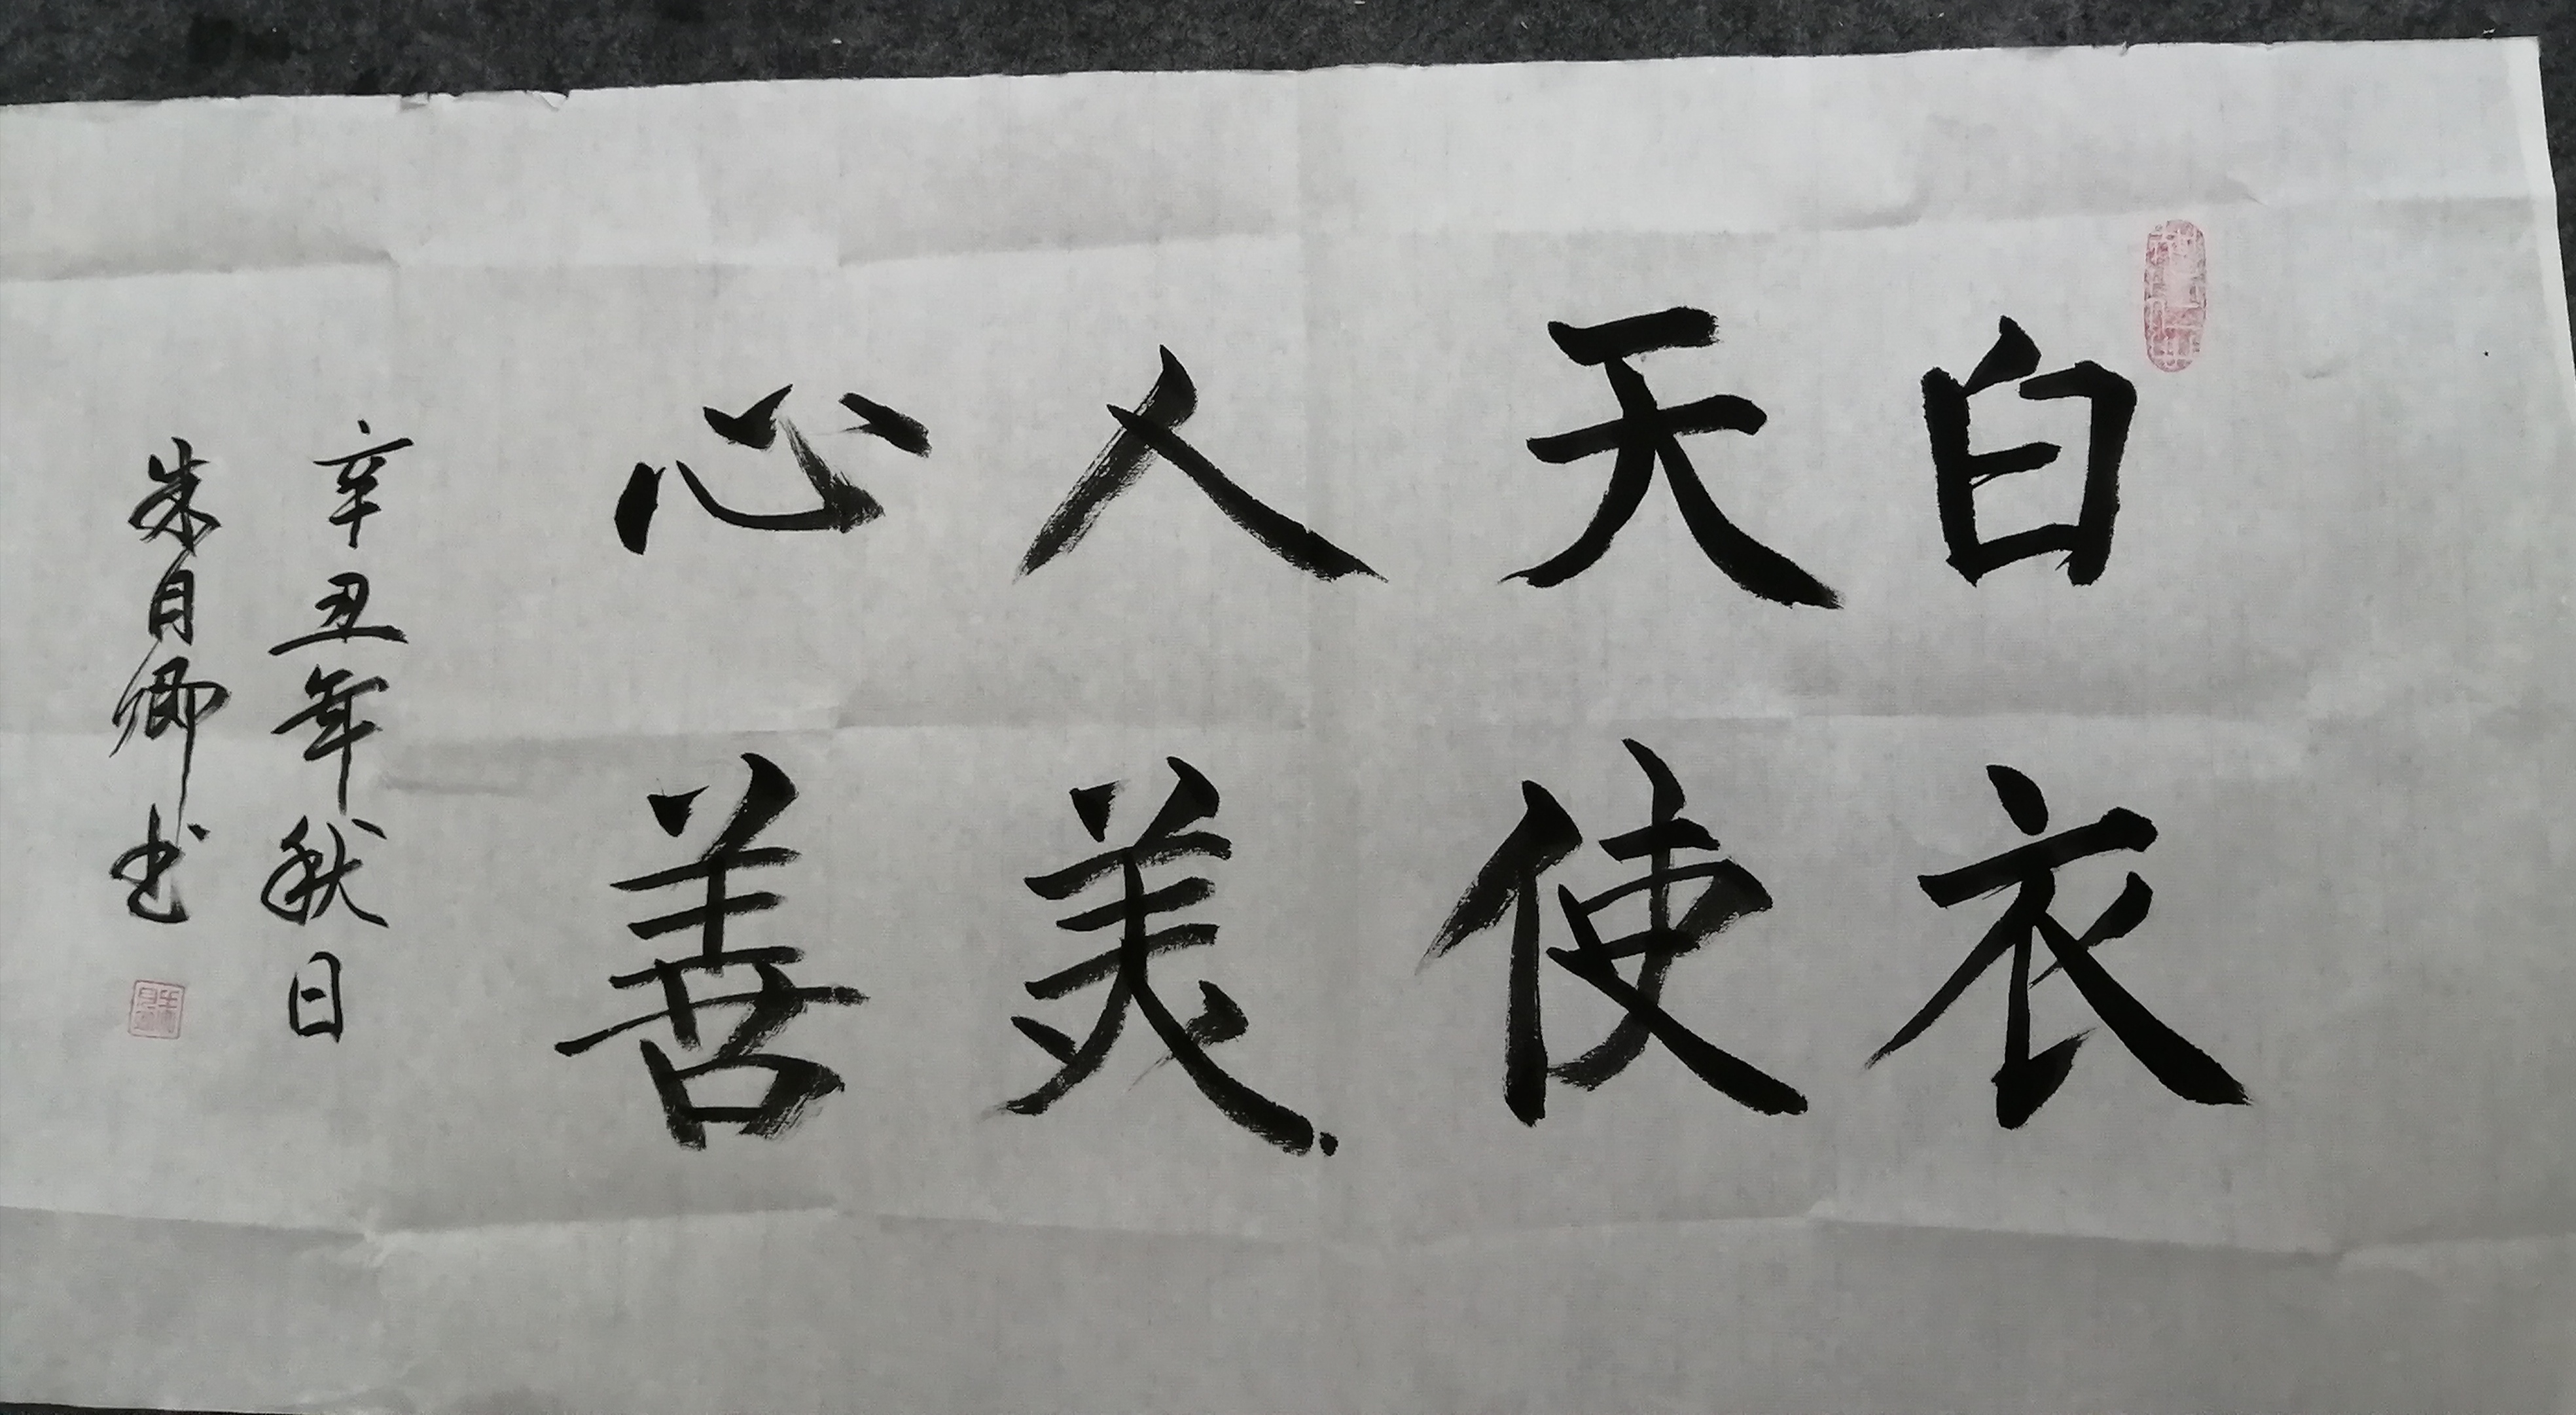 白衣
天使
人美
心善
辛丑年秋日
朱目卿书